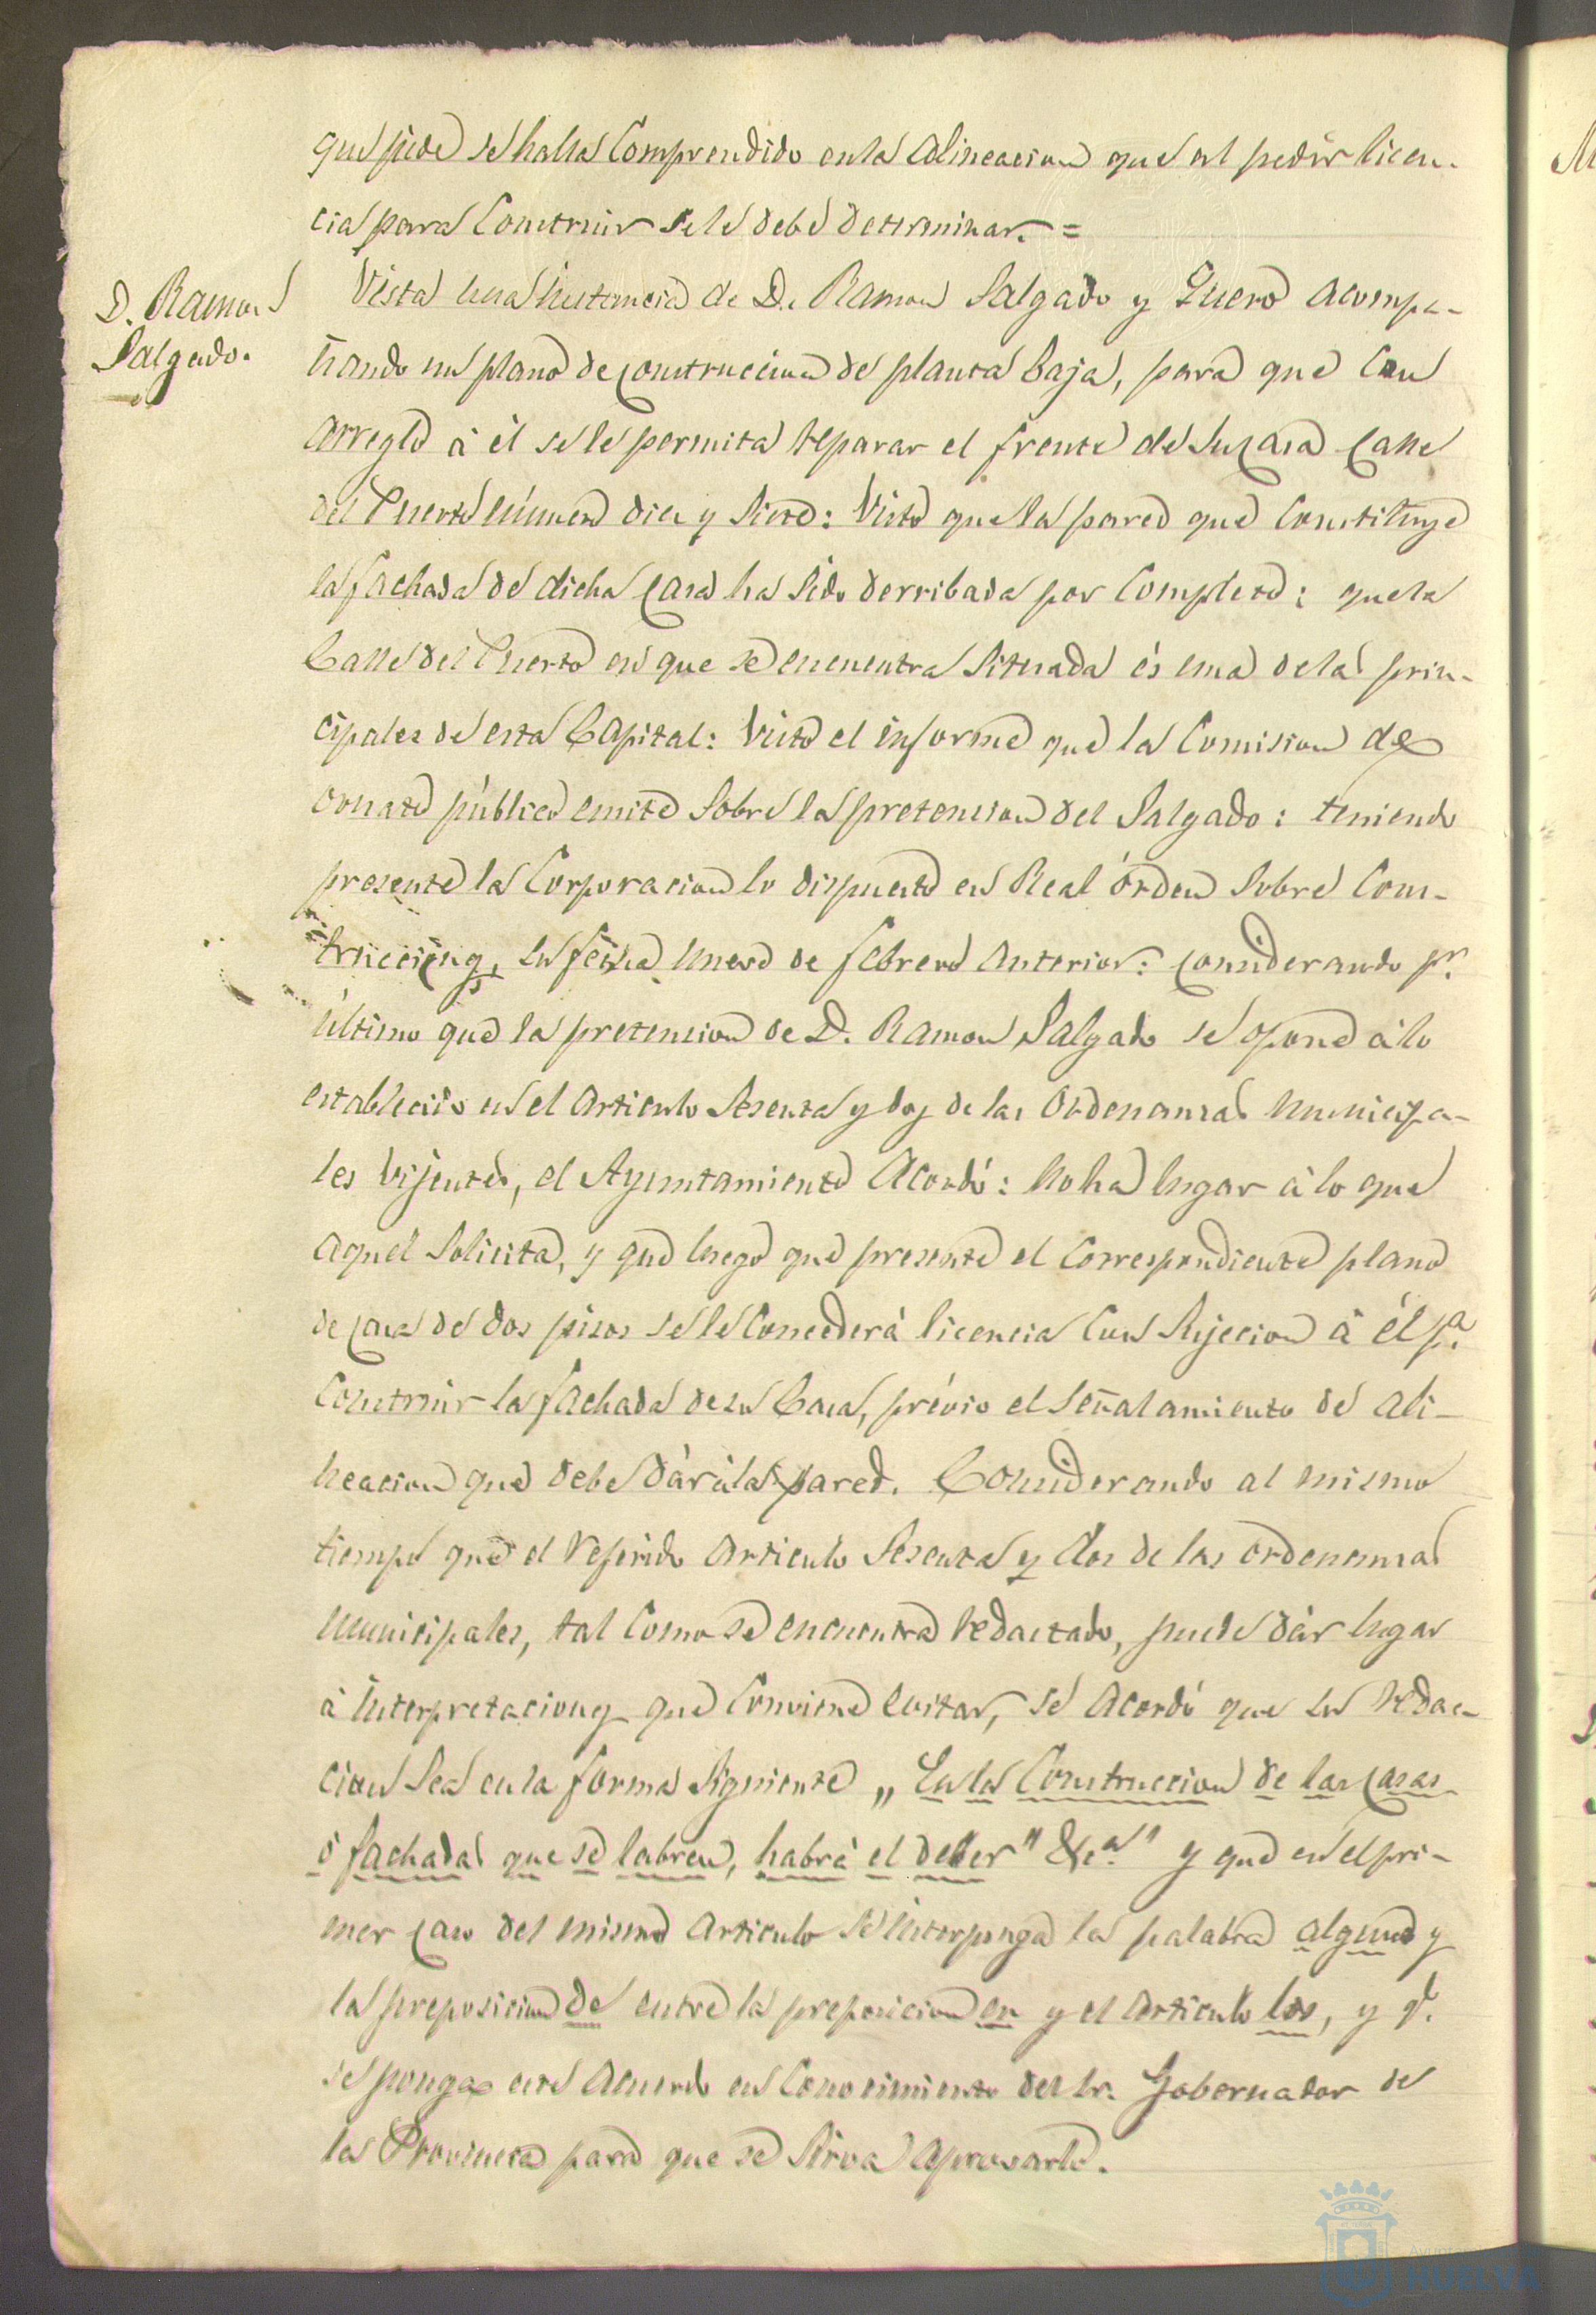 que pide se halla comprendido en la alineacion que al pedir licen-
cia para construir se le debe determinar. =
D. Ramon
Salgado.
Vista una instancia de D. Ramon Salgado y Quero acompa-
ñando un plano de construccion de planta baja, para que con
arreglo à él se le permita reparar el frente de su casa calle
del Puerto número diez y siete: Visto que la pared que constituye
la fachada de dicha casa ha sido derribada por completo: que la
Calle del Puerto en que se encuentra situada és una de las prin-
cipales de esta Capital: Visto el informe que la Comision de
ornato público emite sobre la pretension del Salgado: teniendo
presente la Corporacion lo dispuesto en Real órden sobre cons-
trucciones, su fecha nueve de febrero anterior: considerando pr.
último que la pretension de D. Ramon Salgado se opone à lo
establecido en el articulo sesenta y dos de las Ordenanzas municipa-
les vijentes, el Ayuntamiento acordó: no ha lugar à lo que
aquel solicita, y que luego que presente el correspondiente plano
de casa de dos pisos se le concederá licencia con sujecion à él pa.
construir la fachada de su Casa, prévio el señalamiento de ali-
neacion que debe dár à la pared. Considerando al mismo
tiempo que el referido articulo sesenta y dos de las ordenanzas
municipales, tal como se encuentra redactado, puede dár lugar
à interpretaciones que conviene evitar, se acordó que su redac-
cion sea en la forma siguiente „ En la construccion de las casas
ó fachadas que se labren, habrá el deber" &ca." y que en el pri-
mer caso del mismo articulo se interponga la palabra alguno y
la preposicion de entre la preposicion en y el articulo los, y q.
se ponga este acuerdo en conocimiento del Sr. Gobernador de
la Provincia para que se sirva aprovarlo.
HUELVA